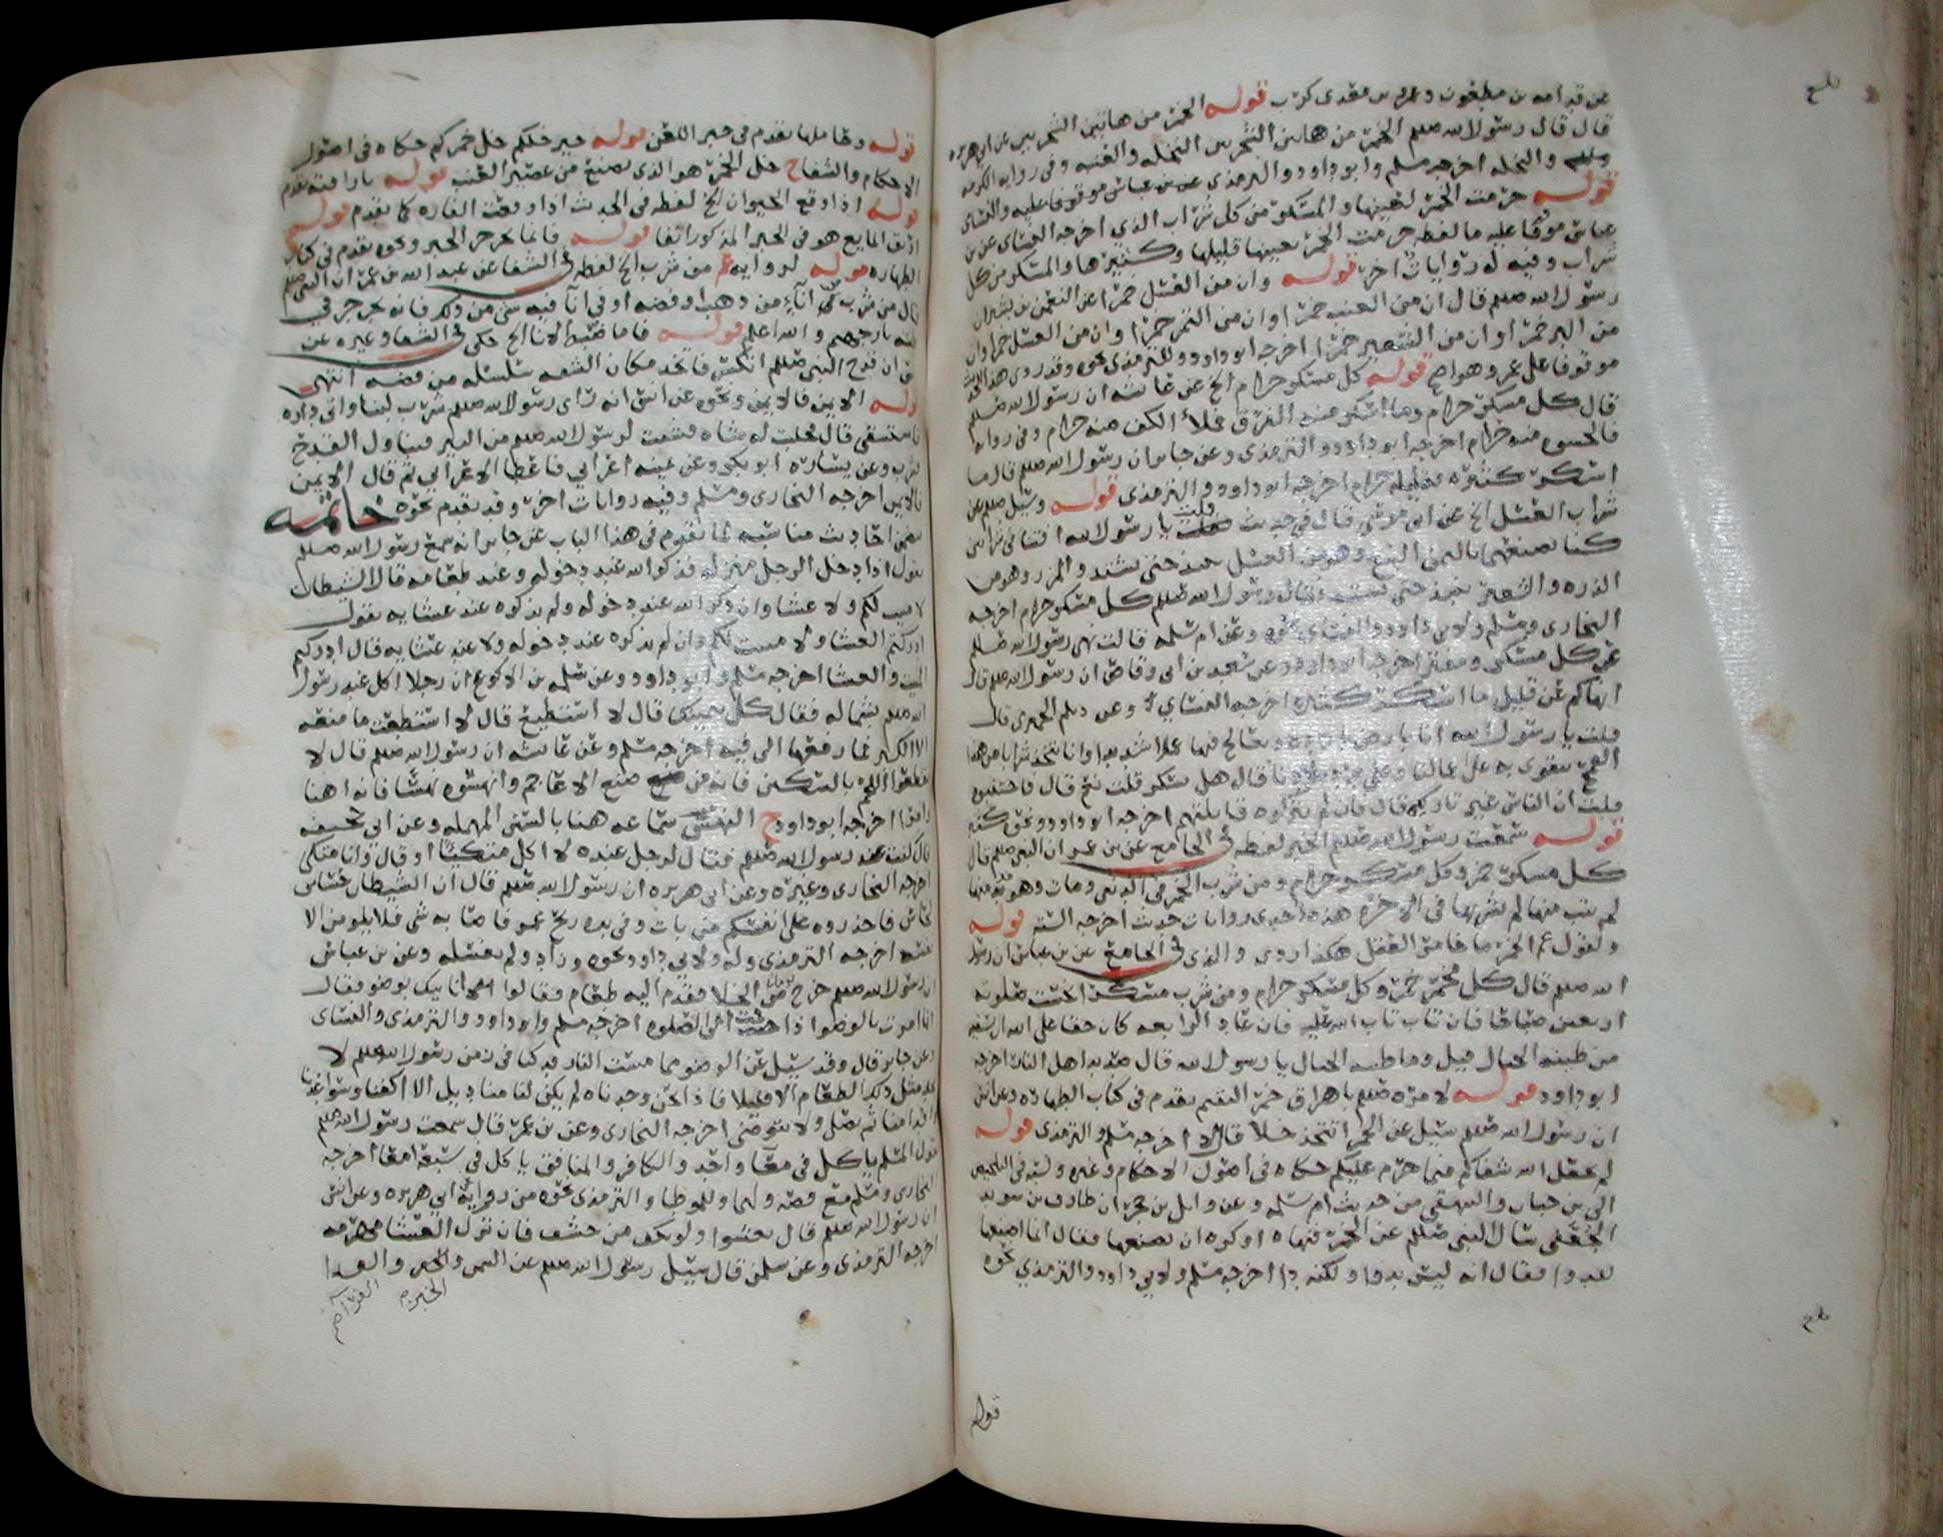 عن قدامه بن مظعون وعمرو بن معدي كرب قوله الخمر من هاتين الشجرتين عن ابي هريره
قال قال رسول الله صلعم الخمر من هاتين الشجرتين النخله والعنبه وفي روايه الكرمه
والنخله اخرجه مسلم وابو داود والترمذي عن بن عباس موقوفا عليه والنساي
قوله حرمت الخمر لعينها والمسكر من كل شراب الذي اخرجه النساي عن بن
عباس موقوفا عليه ما لفظه حرمت الخمر بعينها قليلها وكثيرها والمسكر من كل
شراب وفيه له روايات اخر قوله وان من العسل خمرا عن النعمن بن بشير ان
رسول الله صلعم قال ان من العنب خمرا وان من التمر خمرا وان من العسل خمرا وان
من البر خمرا وان من الشعير خمرا اخرجه ابو داود وللترمذي نحوه وقد روي هذا
موقوفا على عمر وهو اصح قوله كل مسكر حرام الخ عن عائشه ان رسول الله صلعم
قال كل مسكر حرام وما اسكر منه الفرق فملأ الكف منه حرام وفي روايه
فالحسوه منه حرام اخرجه ابو داود والترمذي وعن جابر ان رسول الله صلعم قال ما
اسكر كثيره فقليله حرام اخرجه ابو داود والترمذي قوله وسئل صلعم عن
شراب العسل الخ عن ابي موسى قال في حديث قلت يا رسول الله افتنا في شرابين
كنا نصنعهما باليمن البتع وهو من العسل ينبذ حتى يشتد والمزر وهو من
الذره والشعير ينبذ حتى يشتد فقال رسول الله صلعم كل مسكر حرام اخرجه
البخاري ومسلم ولابي داود والنساي نحوه وعن ام سلمه قالت نهى رسول الله صلعم
عن كل مسكر ومفتر اخرجه ابو داود وعن سعد بن ابي وقاص ان رسول الله صلعم قال
انهاكم عن قليل ما اسكر كثيره اخرجه النساي وعن ديلم الحميري قال
قلت يا رسول الله انا بارض بارده ونعالج فيها عملا شديدا وانا نتخذ شرابا من هذا
القمح نتقوى به على اعمالنا وعلى برد بلادنا قال هل يسكر قلت نعم قال فاجتنبوه
قلت ان الناس غير تاركيه قال فان لم يتركوه فقاتلوهم اخرجه ابو داود
قوله سمعت رسول الله صلعم الخبر لفظه في الجامع عن بن عمر ان النبي صلعم قال
كل مسكر خمر وكل مسكر حرام ومن شرب الخمر في الدنيا ومات وهو يدمنها
لم يتب منها لم يشربها في الاخره هذه احدى روايات حديث اخرجه السته قوله
ولقوله الخمر ما خامر العقل هكذا روي والذي في الجامع عن بن عباس ان رسول
الله صلعم قال كل مخمر خمر وكل مسكر حرام ومن شرب مسكرا بخست صلوته
اربعين صباحا فان تاب تاب الله عليه فان عاد الرابعه كان حقا على الله ان يسقيه
من طينه الخبال قيل وما طينه الخبال يا رسول الله قال صديد اهل النار اخرجه
ابو داود قوله لامره صلعم باهراق خمر اليتيم تقدم في كتاب الطهاره وعن انس
ان رسول الله صلعم سئل عن الخمر اتتخذ خلا قال لا اخرجه مسلم والترمذي قوله
لم يجعل الله شفاكم فيما حرم عليكم حكاه في اصول الاحكام وغيره ونسبه في التلخيص
الى بن حبان والبيهقي من حديث ام سلمه وعن وايل بن حجر ان طارق بن سويد
الجعفي سال النبي صلعم عن الخمر فنهاه او كره ان يصنعها فقال انما اصنعها
للدوا فقال انه ليس بدوا ولكنه دا اخرجه مسلم ولابي داود والترمذي نحوه
قوله
قوله وعاملها تقدم في خبر اللعن قوله خير خلكم خل خمركم حكاه في اصول
الاحكام والشفا ح خل الخمر هو الذي يصنع من عصير العنب قوله باراقته تقدم
قوله اذا وقع الحيوان الخ لفظه في الحديث اذا وقعت الفاره كما تقدم قوله
اريق المايع هو في الخبر المذكور انفا قوله فانما يجرجر الخبر ونحوه تقدم في كتاب
الطهاره قوله لروايه عم من شرب الخ لفظه في الشفا عن عبد الله بن عمر ان النبي صلعم
قال من شرب في انآء من ذهب او فضه او في انآ فيه شي من ذلك فانه يجرجر في
بطنه نار جهنم والله اعلم قوله فاما ضبط الانا الخ حكى في الشفا وغيره عن
انس ان قدح النبي صلعم انكسر فاتخذ مكان الشعب سلسله من فضه انتهى
قوله الايمن فالايمن ونحوه عن انس انه راى رسول الله صلعم شرب لبنا واتى داره
فاستسقى قال فحلبت له شاه فشبت لرسول الله صلعم من البير فتناول القدح
فشرب وعن يساره ابو بكر وعن يمينه اعرابي فاعطا الاعرابي ثم قال الايمن
فالايمن اخرجه البخاري ومسلم وفيه روايات اخر وقد تقدم نحوه خاتمه
تضمن احاديث مناسبه لما تقدم في هذا الباب عن جابر انه سمع رسول الله صلعم
يقول اذا دخل الرجل منزله فذكر الله عند دخوله وعند طعامه قال الشيطان
لا مبيت لكم ولا عشا وان ذكر الله عند دخوله ولم يذكره عند عشايه يقول
ادركتم العشا ولا مبيت لكم وان لم يذكره عند دخوله ولا عند عشايه قال ادركتم
المبيت والعشا اخرجه مسلم وابو داود وعن سلمه بن الاكوع ان رجلا اكل عند رسول
الله صلعم بشماله فقال كل بيمينك قال لا استطيع قال لا استطعت ما منعه
الا الكبر فما رفعها الى فيه اخرجه مسلم وعن عائشه ان رسول الله صلعم قال لا
تقطعوا اللحم بالسكين فانه من صنع الاعاجم وانهشوه نهشا فانه اهنا
وامرا اخرجه ابو داود ح النهس سماعه هنا بالسين المهمله وعن ابي جحيفه
قال كنت عند رسول الله صلعم فقال لرجل عنده لا اكل متكئا او قال وانا متكي
اخرجه البخاري وغيره وعن ابي هريره ان رسول الله صلعم قال ان الشيطان حساس
لحاس فاحذروه على انفسكم من بات وفي يده ريح غمر فاصابه شي فلا يلومن الا
نفسه اخرجه الترمذي وله ولابي داود نحوه وزاد ولم يغسله وعن بن عباس
ان رسول الله صلعم خرج من الخلا فقدم اليه طعام فقالوا الا ناتيك بوضو فقال
انما امرت بالوضوا اذا قمت الى الصلوه اخرجه مسلم وابو داود والترمذي والنساي
وعن جابر قال وقد سئل عن الوضو مما مست النار قد كنا في زمن رسول الله صلعم لا
نجد مثل ذلك الطعام الا قليلا فاذا نحن وجدناه لم يكن لنا مناديل الا اكفنا وسواعدنا
واقدامنا ثم نصلي ولا نتوضى اخرجه البخاري وعن بن عمر قال سمعت رسول الله صلعم
يقول المسلم ياكل في معا واحد والكافر والمنافق ياكل في سبعه امعا اخرجه
البخاري ومسلم مع قصه ولهما وللموطا والترمذي نحوه من روايه ابي هريره وعن انس
ان رسول الله صلعم قال تعشوا ولو بكف من حشف فان ترك العشا مهرمه
اخرجه الترمذي وعن سلمن قال سئل رسول الله صلعم عن السمن والجبن والفرا